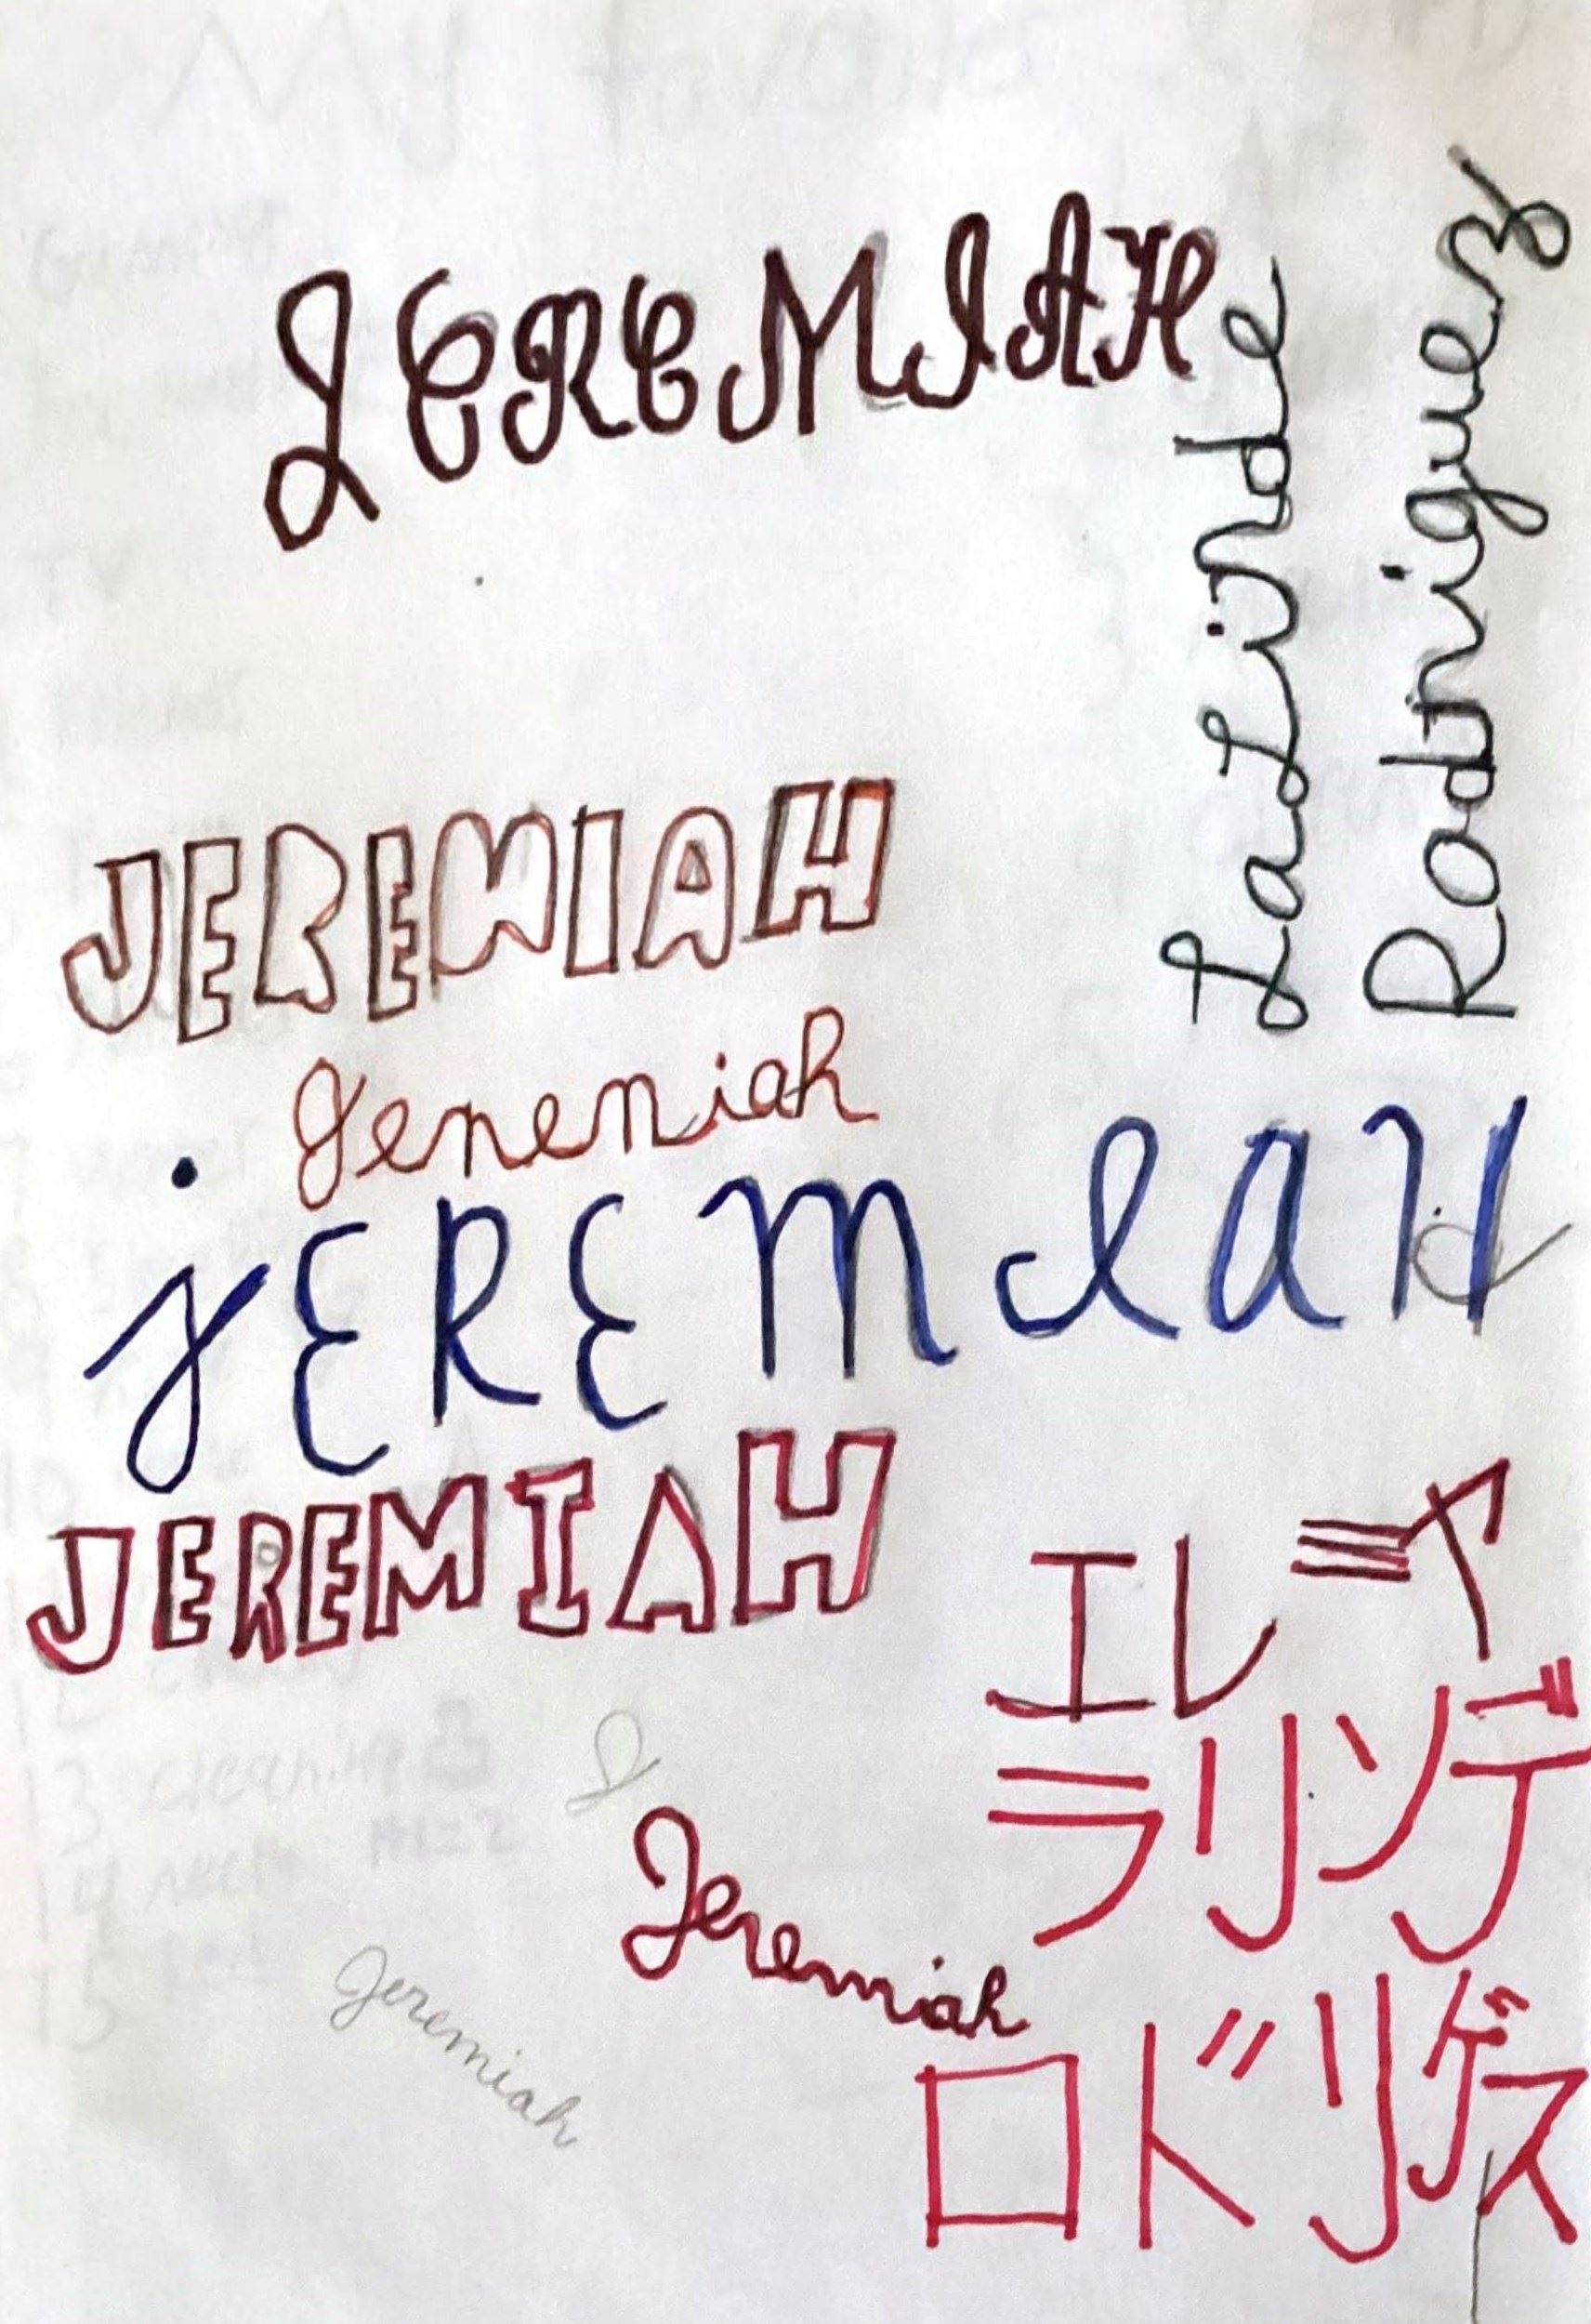 JEREMIAH
LaLinde
Rodriguez
JEREMIAH
Jeremiah
jEREMIAH
JEREMIAH
エレミヤ
ラリンデ
Jeremiah
ロドリゲス
Jeremiah